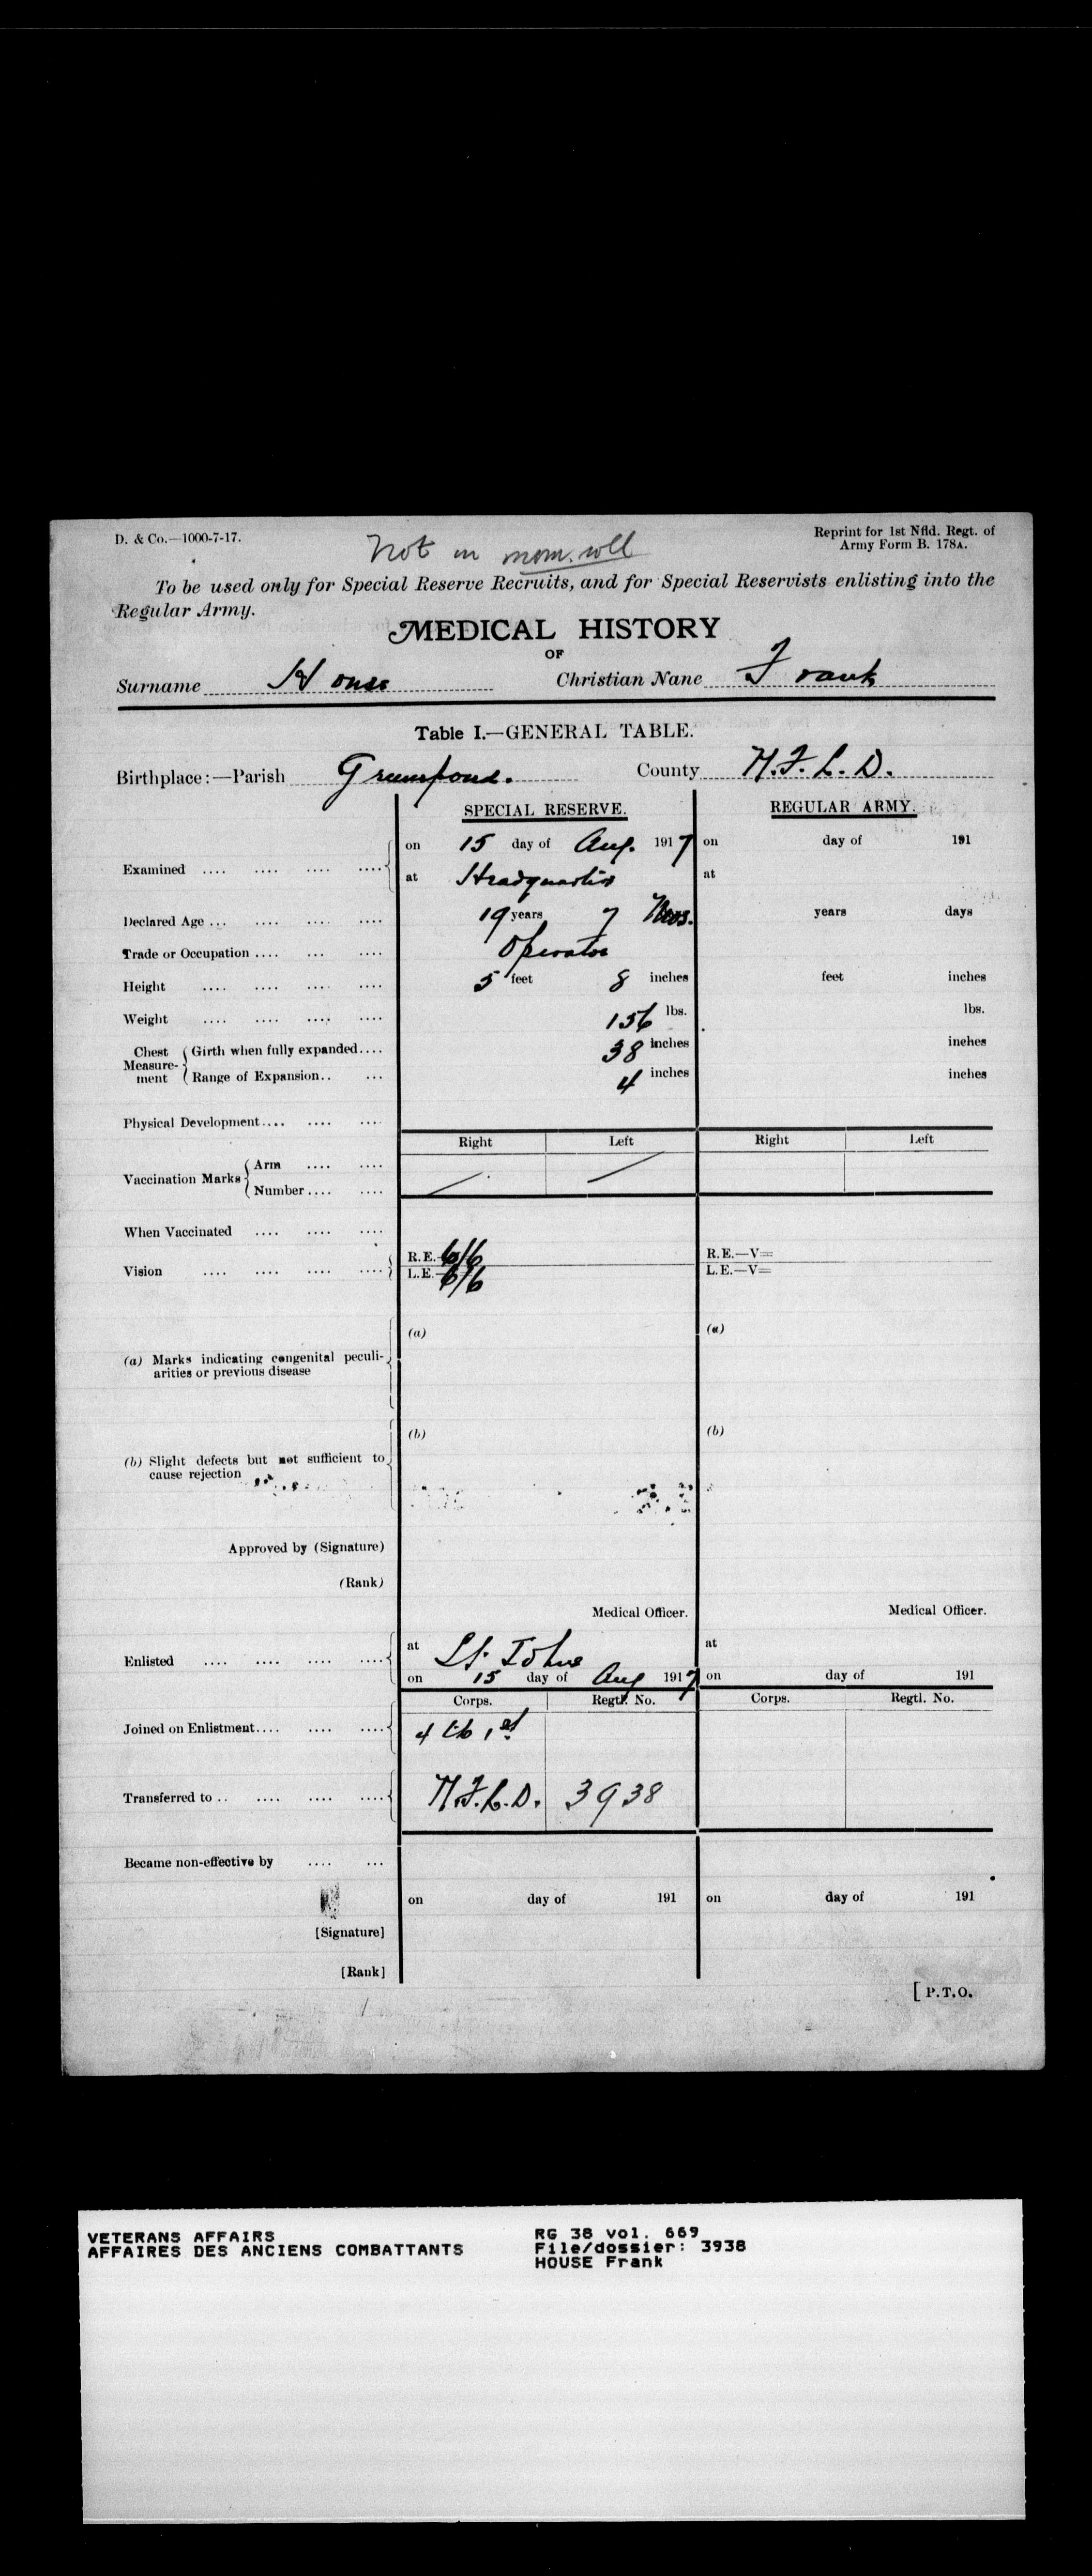 D. & Co.—1000-7-17.
Not in nom. roll
Reprint for 1st Nfld. Regt. of
Army Form B. 178A.
To be used only for Special Reserve Recruits, and for Special Reservists enlisting into the
Regular Army.
MEDICAL HISTORY
OF
Surname House Christian Nane Frank
Table I.—GENERAL TABLE.
Birthplace:—Parish Greenspond. County N.F.L.D.
SPECIAL RESERVE. REGULAR ARMY.
Examined .... .... .... .... on 15 day of Aug. 1917 on day of 191
at Headquarters at
Declared Age ... .... .... .... 19 years 7 Mos. years days
Trade or Occupation .... ... .... Operator
Height .... .... .... .... 5 feet 8 inches feet inches
Weight .... .... .... .... 156 lbs. lbs.
Chest Measurement Girth when fully expanded.... 38 inches inches
Range of Expansion.. ... 4 inches inches
Physical Development.... .... ....
Right Left Right Left
Vaccination Marks Arm .... ....
Number.... ....
When Vaccinated .... .... ....
Vision .... .... .... .... R.E.—6/6 R.E.—V=
L.E.—6/6 L.E.—V=
(a) Marks indicating congenital peculi- (a) (a)
arities or previous disease
(b) Slight defects but not sufficient to (b) (b)
cause rejection
Approved by (Signature)
(Rank)
Medical Officer. Medical Officer.
Enlisted .... .... .... .... at St. Johns at
on 15 day of Aug 1917 on day of 191
Corps. Regtl. No. Corps. Regtl. No.
Joined on Enlistment.... .... .... 1st
Transferred to .. .... .... .... N.F.L.D. 3938
Became non-effective by .... ...
on day of 191 on day of 191
[Signature]
[Rank]
[ P.T.O.
VETERANS AFFAIRS RG 38 vol. 669
AFFAIRES DES ANCIENS COMBATTANTS File/dossier: 3938
HOUSE Frank